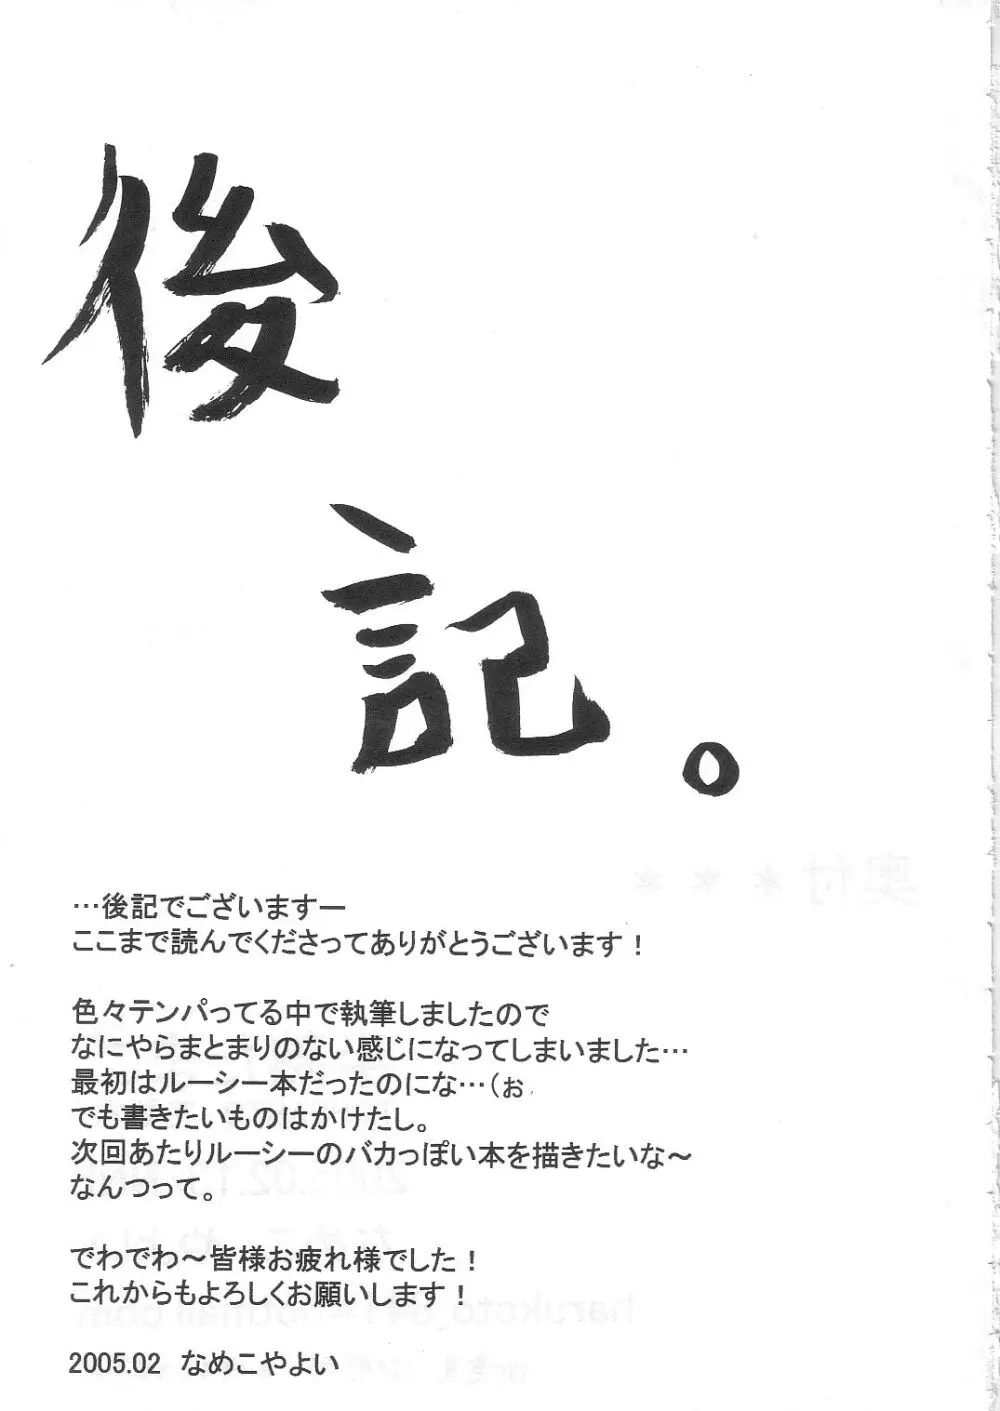 後
記。
…後記でございますー
ここまで読んでくださってありがとうございます！
色々テンパってる中で執筆しましたので
なにやらまとまりのない感じになってしまいました…
最初はルーシー本だったのにな…（ぉ
でも書きたいものはかけたし。
次回あたりルーシーのバカっぽい本を描きたいな～
なんつって。
でわでわ～皆様お疲れ様でした！
これからもよろしくお願いします！
2005.02　なめこやよい